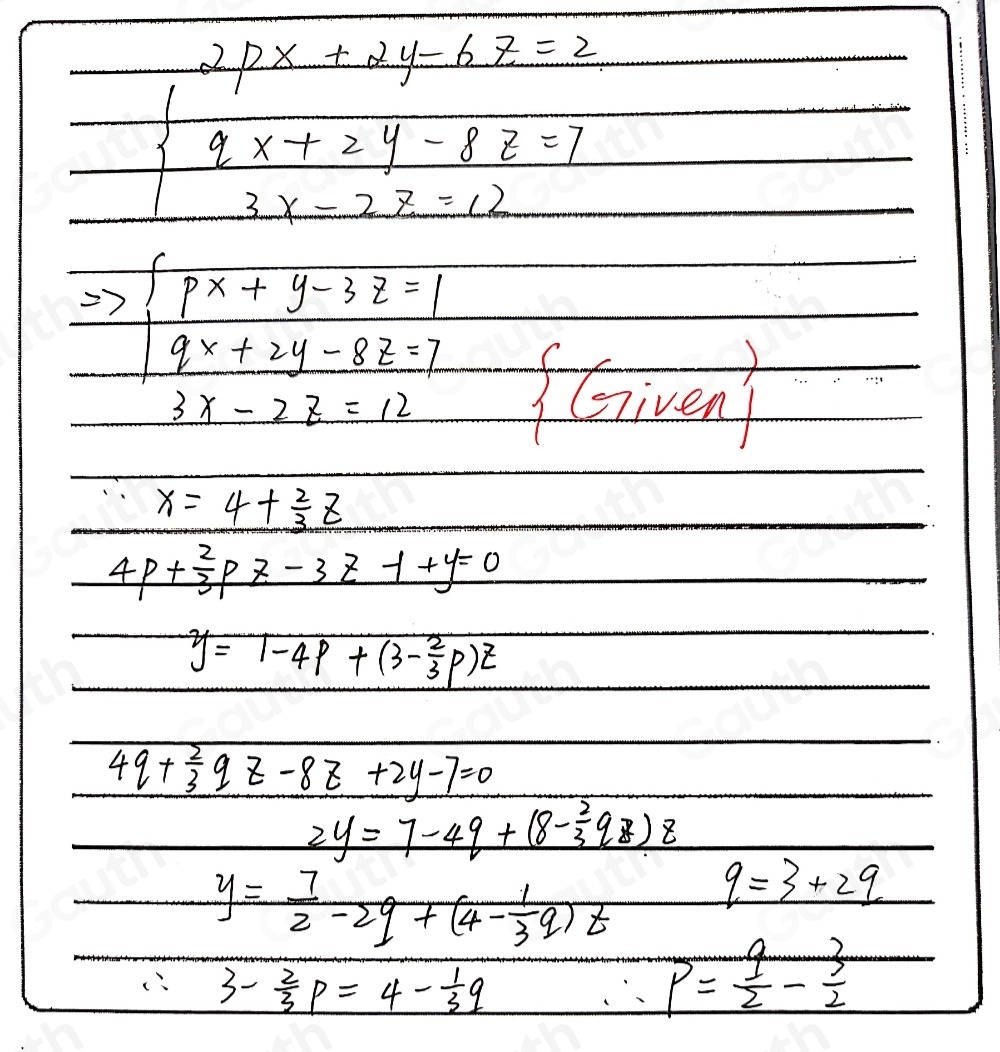 2px + 2y - 6z = 2
qx + 2y - 8z = 7
3x - 2z = 12
=> px + y - 3z = 1
qx + 2y - 8z = 7
3x - 2z = 12 {Given}
∴ x = 4 + 2/3 z
4p + 2/3 pz - 3z - 1 + y = 0
y = 1 - 4p + (3 - 2/3 p)z
4q + 2/3 qz - 8z + 2y - 7 = 0
2y = 7 - 4q + (8 - 2/3 q)z
y = 7/2 - 2q + (4 - 1/3 q)z q = 3 + 2q
∴ 3 - 2/3 p = 4 - 1/3 q ∴ p = q/2 - 3/2
Gauth